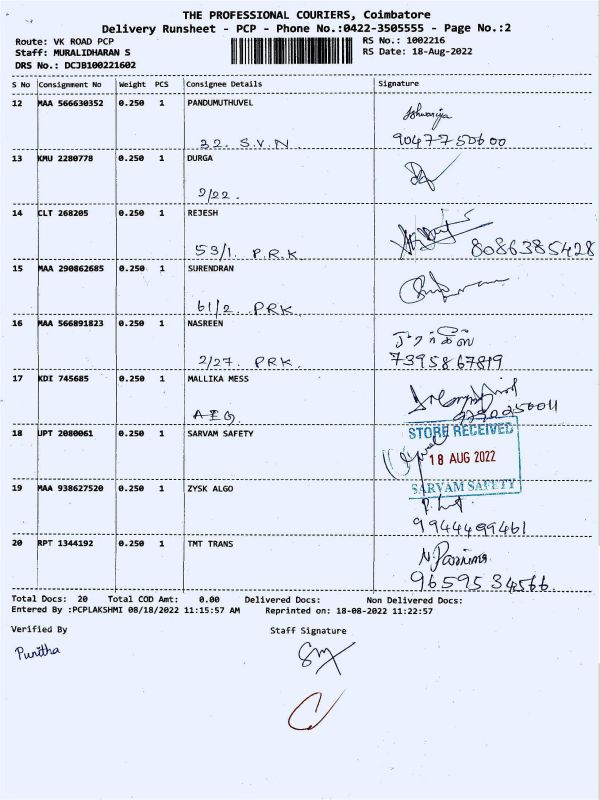 THE PROFESSIONAL COURIERS, Coimbatore
Delivery Runsheet - PCP - Phone No.:0422-3505555 - Page No.:2
Route: VK ROAD PCP
Staff: MURALIDHARAN S
DRS No.: DCJB100221602
RS No.: 1002216
RS Date: 18-Aug-2022
S No Consignment No Weight PCS Consignee Details Signature
12 MAA 566630352 0.250 1 PANDUMUTHUVEL
32. S.V.N 9047750600
13 KMU 2280778 0.250 1 DURGA
2/22.
14 CLT 268205 0.250 1 REJESH
53/1. P.R.K 8086385428
15 MAA 290862685 0.250 1 SURENDRAN
61/2 PRK
16 MAA 566891823 0.250 1 NASREEN
2/27. PRK. 7395867819
17 KDI 745685 0.250 1 MALLIKA MESS
18 UPT 2080061 0.250 1 SARVAM SAFETY
STORE RECEIVED
18 AUG 2022
SARVAM SAFETY
19 MAA 938627520 0.250 1 ZYSK ALGO
9944499461
20 RPT 1344192 0.250 1 TMT TRANS
9659534566.
Total Docs: 20 Total COD Amt: 0.00 Delivered Docs: Non Delivered Docs:
Entered By :PCPLAKSHMI 08/18/2022 11:15:57 AM Reprinted on: 18-08-2022 11:22:57
Verified By Staff Signature
Punitha